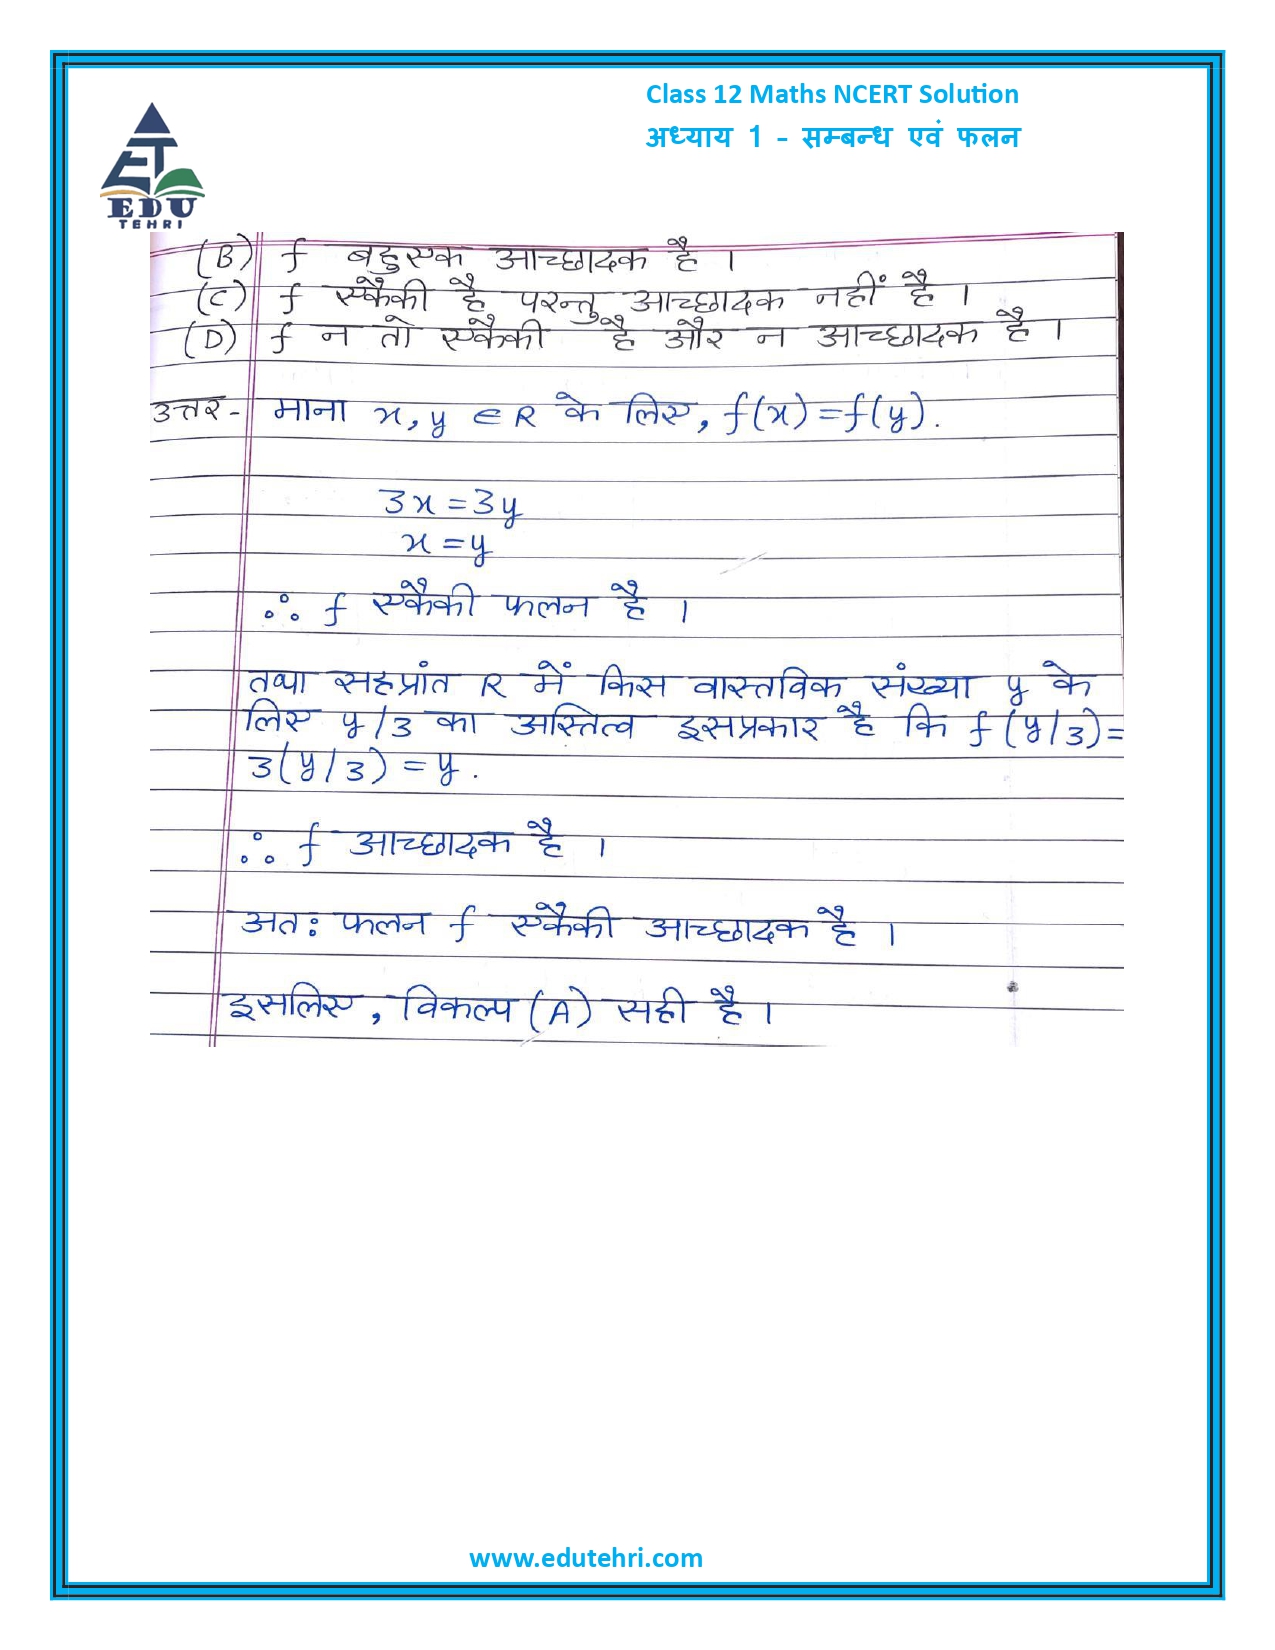 Class 12 Maths NCERT Solution
अध्याय 1 - सम्बन्ध एवं फलन
EDU
TEHRI
(B) f बहुएक आच्छादक है ।
(C) f एकैकी है परन्तु आच्छादक नहीं है ।
(D) f न तो एकैकी है और न आच्छादक है ।
उत्तर- माना x, y ∈ R के लिए, f(x) = f(y).
3x = 3y
x = y
∴ f एकैकी फलन है ।
तथा सहप्रांत R में किस वास्तविक संख्या y के
लिए y/3 का अस्तित्व इसप्रकार है कि f(y/3)=
3(y/3) = y.
∴ f आच्छादक है ।
अत: फलन f एकैकी आच्छादक है ।
इसलिए, विकल्प (A) सही है ।
www.edutehri.com